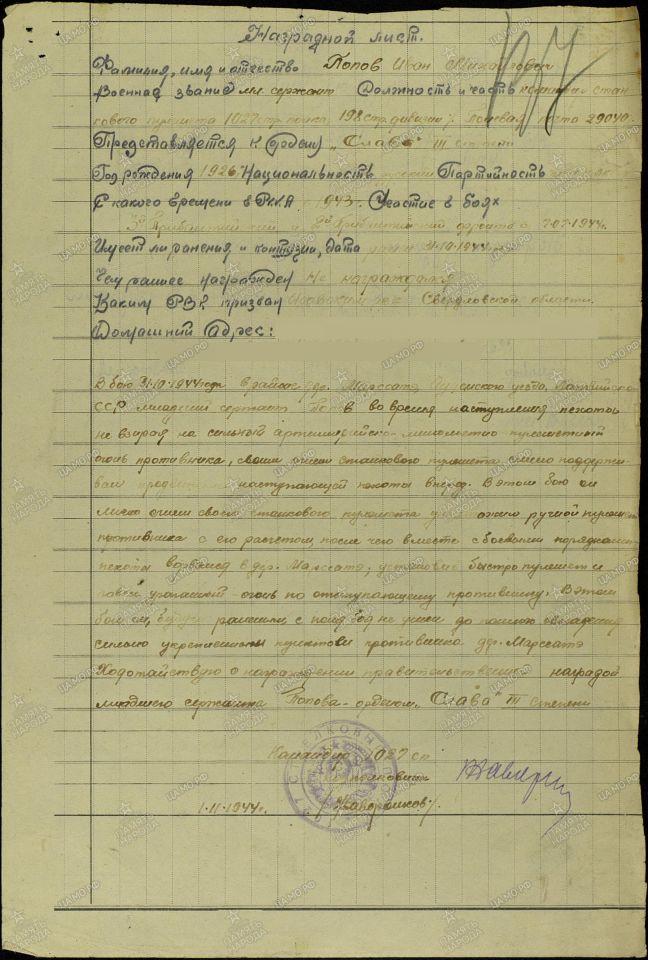 Наградной лист.
Фамилия, имя и отчество Попов Иван Михайлович
Военное звание мл. сержант Должность и часть командир стан-
кового пулемета 1027 стр. полка, 198 стр. дивизии, полевая почта 29040.
Представляется к ордену „Слава" III степени
Год рождения 1926 Национальность русский Партийность
С какого времени в РККА с 1943 г. Участие в боях
3й Прибалтийский и 2й Прибалтийский фронта с 7.07.1944г.
Имеет ли ранения и контузии, дата 31.10.1944
Чем раннее награжден Не награждался
Каким РВК призван Свердловской области.
Домашний адрес:
В бою 31.10.1944 года в районе дер. Марссатэ уезда, Латвийской
ССР младший сержант Попов во время наступления пехоты
не взирая на сильный артиллерийско-минометно пулеметный
огонь противника, своим огнем станкового пулемета смело поддержи-
вал наступающей пехоты вперед. В этом бою он
лично огнем своего станкового пулемета уничтожил ручной пулемет
противника с его расчетом, после чего вместе с боевыми порядками
пехоты ворвался в дер. Марссатэ, установив быстро пулемет и
повел огонь по отступающему противнику. В этом
бою он, будучи раненым с поля боя не ушел до полного овладения
сильно укрепленным пунктом противника дер. Марссатэ
Ходотайствую о награждении правительственной наградой
младшего сержанта Попова - орденом „Слава" III степени
Командир 1027 сп
подполковник
1.11.1944г.
ЦАМО.РФ
ПАМЯТЬ НАРОДА